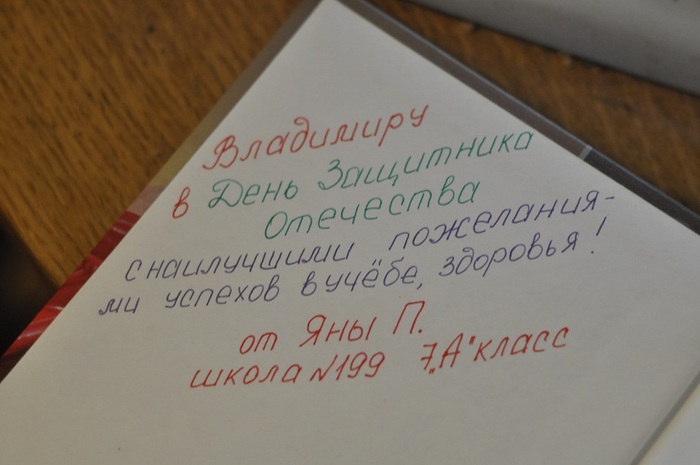 Владимиру
в День Защитника
Отечества
с наилучшими пожелания-
ми успехов в учёбе, здоровья!
от Яны П.
школа №199 7 „А" класс